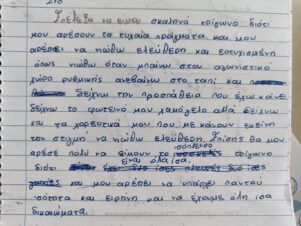 Διάλεξα να είμαι σκαληνό τρίγωνο διότι
μου αρέσουν τα τυχαία πράγματα και μου
αρέσει να νιώθω ελεύθερη και ευτυχισμένη
όπως νιώθω όταν μπαίνω στον αγωνιστικό
χώρο ρυθμικής ανεβαίνω στο ταπί και
δείχνω την προσπάθεια που έχω κάνει
δείχνω το φωτεινό μου χαμόγελο αλλά δείχνω
και τα χορευτικά μου που με κάνουν εκείνη
την στιγμή να νιώθω ελεύθερη Επίσης θα μου
άρεσε πολύ να είμουν το ισόπλευρο τρίγωνο
διότι είναι όλα ίσα
και μου αρέσει να υπάρχει παντού
ισότητα και ειρήνη μαι να έχουμε όλη ίσα
δικαιώματα.